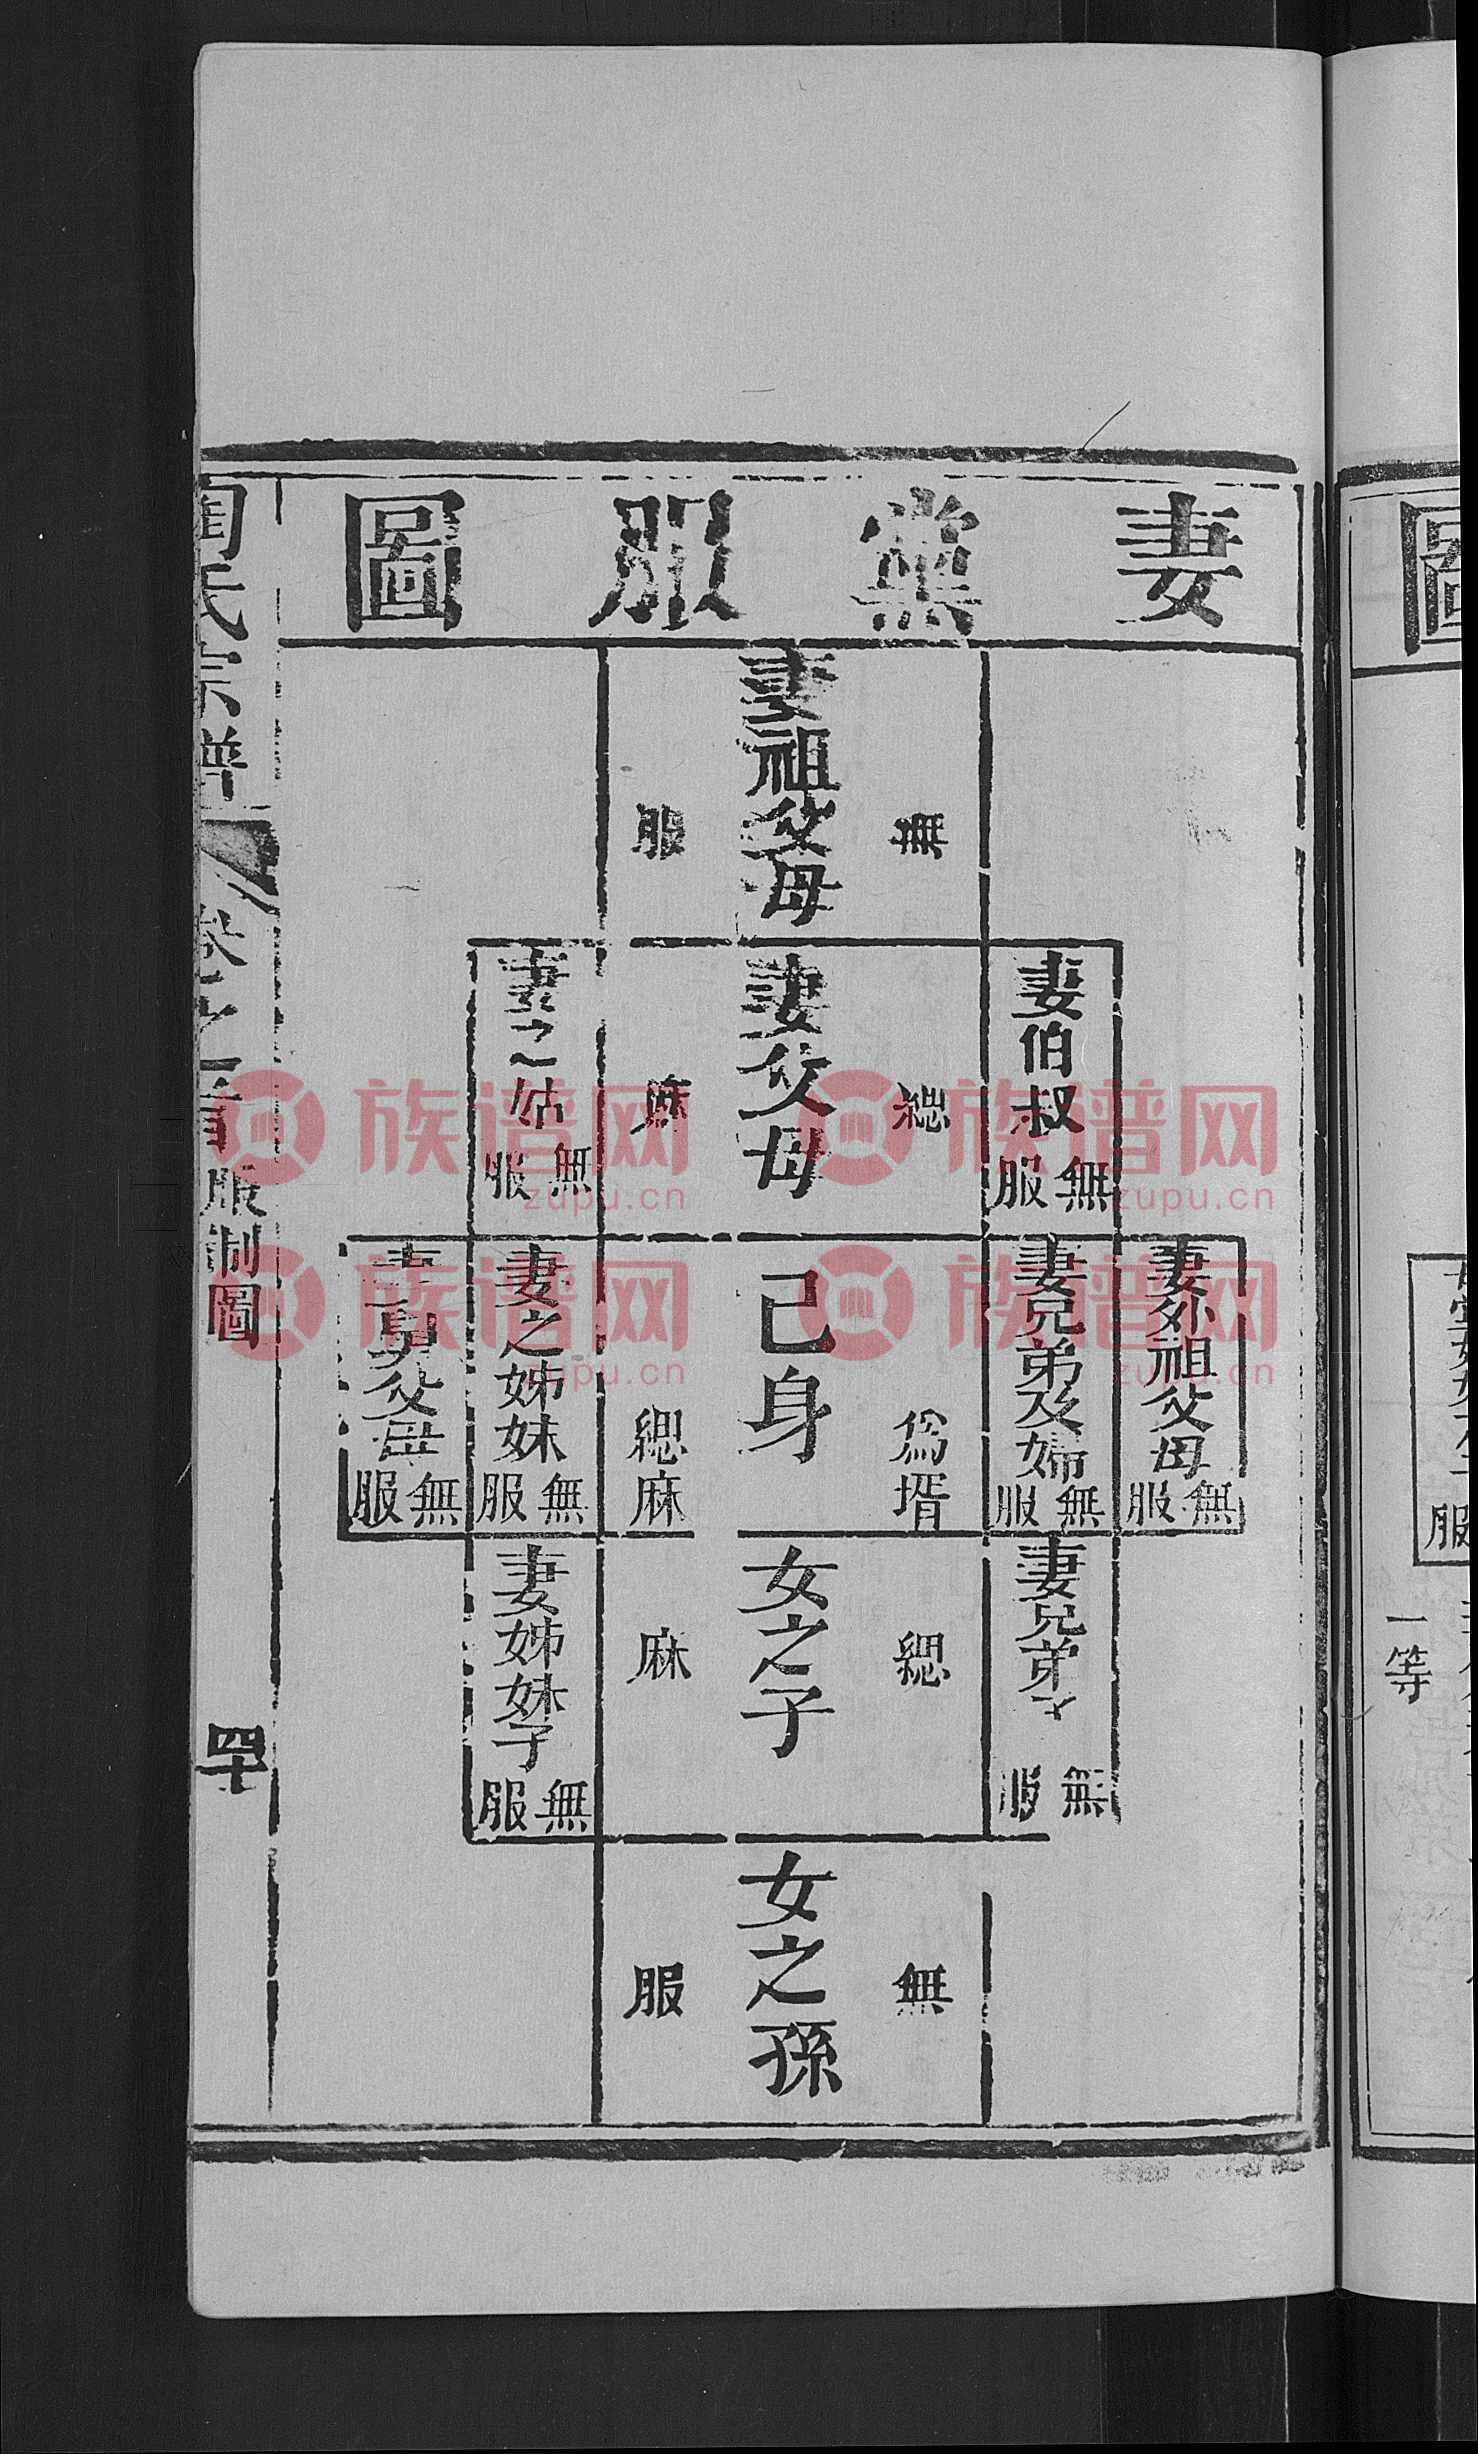 妻黨服圖
妻祖父母
無服
妻伯叔
無服
妻父母
緦麻
妻之姑
無服
妻外祖父母
無服
妻兄弟及婦
無服
己身
爲壻緦麻
妻之姊妹
無服
父母
無服
妻兄弟子
無服
女之子
緦麻
妻姊妹子
無服
女之孫
無服
陶氏宗譜
卷之首
服制圖
四十
圖
服
一等
族谱网
zupu.cn
族谱网
zupu.cn
族谱网
zupu.cn
族谱网
zupu.cn